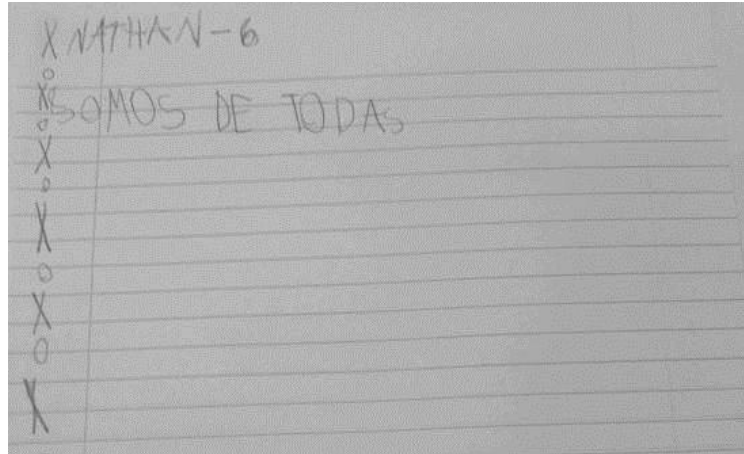 X NATHAN - 6
o
X SOMOS DE TODAS
o
X
o
X
o
X
o
X